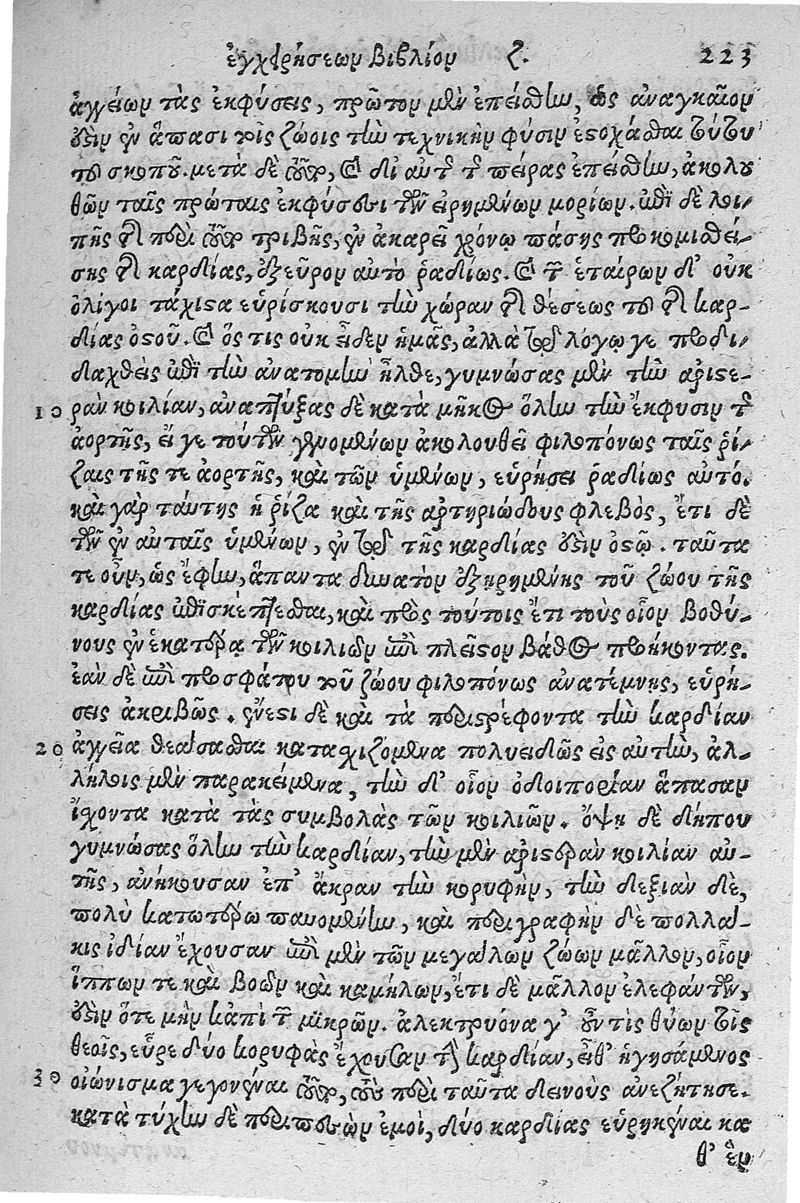 ἐγχειρήσεων βιβλίον ζ. 223
ἀγγείων τὰς ἐκφύσεις, πρῶτον μὲν ἐπείσθην, ὡς ἀναγκαῖον
οὖσιν ἐν ἅπασι τοῖς ζώοις τὴν τεχνικὴν φύσιν ἐστοχάσθαι τούτου
τοῦ σκοποῦ. μετὰ δὲ τοῦτο, καὶ δι' αὐτῆς τῆς πείρας ἐπείσθην, ἀκολου
θῶν ταῖς πρώταις ἐκφύσεσι τῶν εἰρημένων μορίων. ἐπὶ δὲ λοι-
πῆς τῆς περὶ τοῦτο τριβῆς, ἐν ἀκαρεῖ χρόνῳ πάσης προκομισθεί-
σης τῆς καρδίας, ἐξεῦρον αὐτὸ ῥᾳδίως. καὶ τῶν ἑταίρων δ' οὐκ
ὀλίγοι τάχιστα εὑρίσκουσι τὴν χώραν τῆς θέσεως τοῦ τῆς καρ-
δίας ὀστοῦ. καὶ ὅς τις οὐκ εἶδεν ἡμᾶς, ἀλλὰ τῷ λόγῳ γε προδι-
διαχθεὶς ἐπὶ τὴν ἀνατομὴν ἦλθε, γυμνώσας μὲν τὴν ἀριστε-
10 ρὰν κοιλίαν, ἀναπτύξας δὲ κατὰ μῆκος ὅλην τὴν ἔκφυσιν τῆς
ἀορτῆς, εἴ γε τούτων γενομένων ἀκολουθεῖ φιλοπόνως ταῖς ῥί-
ζαις τῆς τε ἀορτῆς, καὶ τῶν ὑμένων, εὑρήσει ῥᾳδίως αὐτό.
καὶ γὰρ ταύτης ἡ ῥίζα καὶ τῆς ἀρτηριώδους φλεβὸς, ἔτι δὲ
τῶν ἐν αὐταῖς ὑμένων, ἐν τῷ τῆς καρδίας ἐστὶν ὀστῷ. ταῦτα
τε οὖν, ὡς ἔφην, ἅπαντα δυνατὸν ἐξῃρημένης τοῦ ζώου τῆς
καρδίας ἐπισκέπτεσθαι, καὶ πρὸς τούτοις ἔτι τοὺς οἷον βοθύ-
νους ἐν ἑκατέρᾳ τῶν κοιλιῶν ἐπὶ πλεῖστον βάθος προήκοντας.
ἐὰν δὲ ἐπὶ προσφάτου τοῦ ζώου φιλοπόνως ἀνατέμνῃς, εὑρή-
σεις ἀκριβῶς. ἔνεστι δὲ καὶ τὰ περιστρέφοντα τὴν καρδίαν
20 ἀγγεῖα θεάσασθαι κατασχιζόμενα πολυειδῶς εἰς αὐτὴν, ἀλ-
λήλοις μὲν παρακείμενα, τὴν δ' οἷον ὁδοιπορίαν ἅπασαν
ἴσχοντα κατὰ τὰς συμβολὰς τῶν κοιλιῶν. ὄψῃ δὲ δήπου
γυμνώσας ὅλην τὴν καρδίαν, τὴν μὲν ἀριστερὰν κοιλίαν αὐ-
τῆς, ἀνήκουσαν ἐπ' ἄκραν τὴν κορυφὴν, τὴν δεξιὰν δὲ,
πολὺ κατωτέρω παυομένην, καὶ περιγραφὴν δὲ πολλά-
κις ἰδίαν ἔχουσαν ἐπὶ μὲν τῶν μεγάλων ζώων μᾶλλον, οἷον
ἵππων τε καὶ βοῶν καὶ καμήλων, ἔτι δὲ μᾶλλον ἐλεφάντων,
ἔστιν ὅτε μὴν κἀπὶ τῶν μικρῶν. ἀλεκτρυόνα γ' οὖν τὶς θύων τοῖς
θεοῖς, εὗρε δύο κορυφὰς ἔχουσαν τὴν καρδίαν, εἶθ' ἡγησάμενος
30 οἰώνισμα γεγονέναι τοῦτο, τοὺς περὶ ταῦτα δεινοὺς ἀνεζήτησε.
κατὰ τύχην δὲ περιπεσὼν ἐμοὶ, δύο καρδίας εὑρηκέναι κα
θ' ἓν